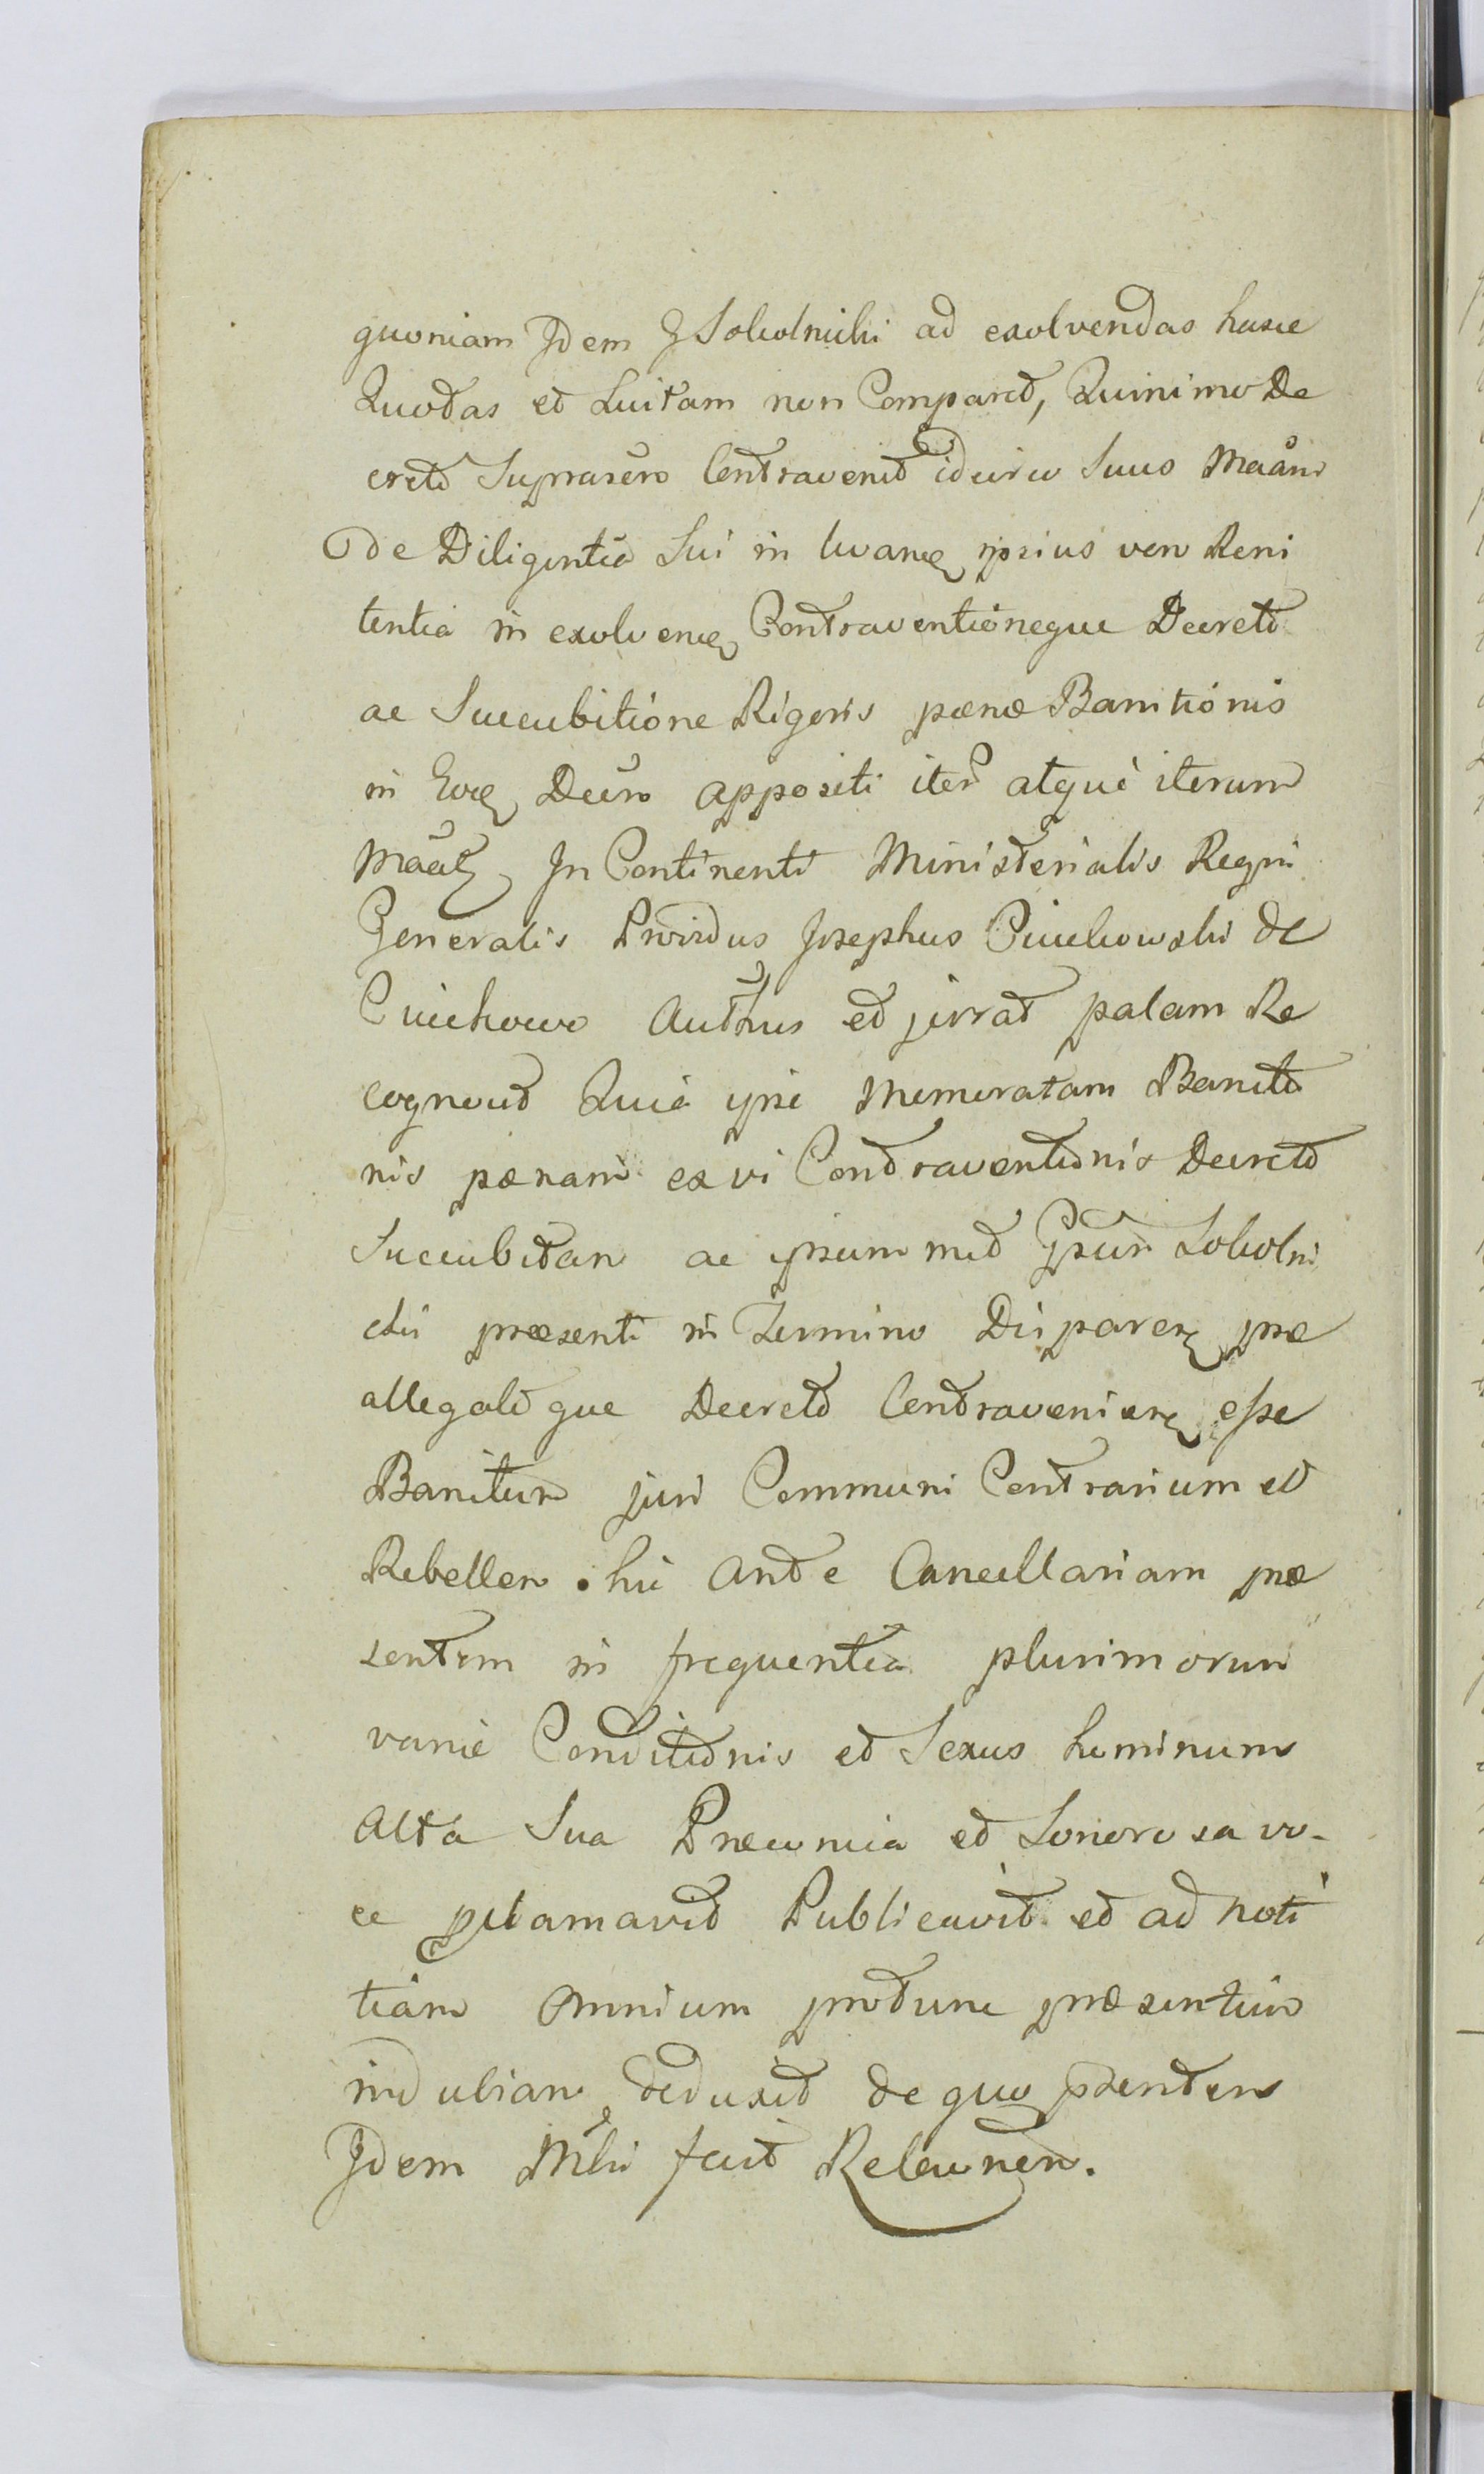 quoniam Idem G Sokolnicki ad exolvendas hasce
Quotas et Luitam non Comparet, Quinimo De
creto Suprascro Contravenit idcirco Suus Maand
de Diligentia Sui in levanq ipsius vero Reni
tentia in exolvenq Contraventioneque Decreto
ac Succubitione Rigoris pœnæ Banitionis
in Eoq Decro appositi iter atque iterum
In Continenti Ministerialis Regni
Generalis Prwidus Josephus Cuichowski de
Cuichowo Authus et jurat palam Re
cognovit Quia ipse Memoratam Banitio
nis pœnam ex vi Contraventionis Decreto
Succubitam ac ipsum met Gsum Sokolni
cki præsenti in Termino Disparerq præ
allegatoque Decreto Contravenierq esse
Banitum juri Communi Contrarium et
Rebellem. hic Ante Cancellariam præ
sentem in frequentia plurimorum
variæ Conditionis et Sexus hominum
Alta Sua Præconia et Sonorosa vo-
ce pclamavit Publicavit et ad noti
tiam Omnium protunc præsentium
indubiam deduxit de quo præntem
Idem Mlis fecit Relaonem.